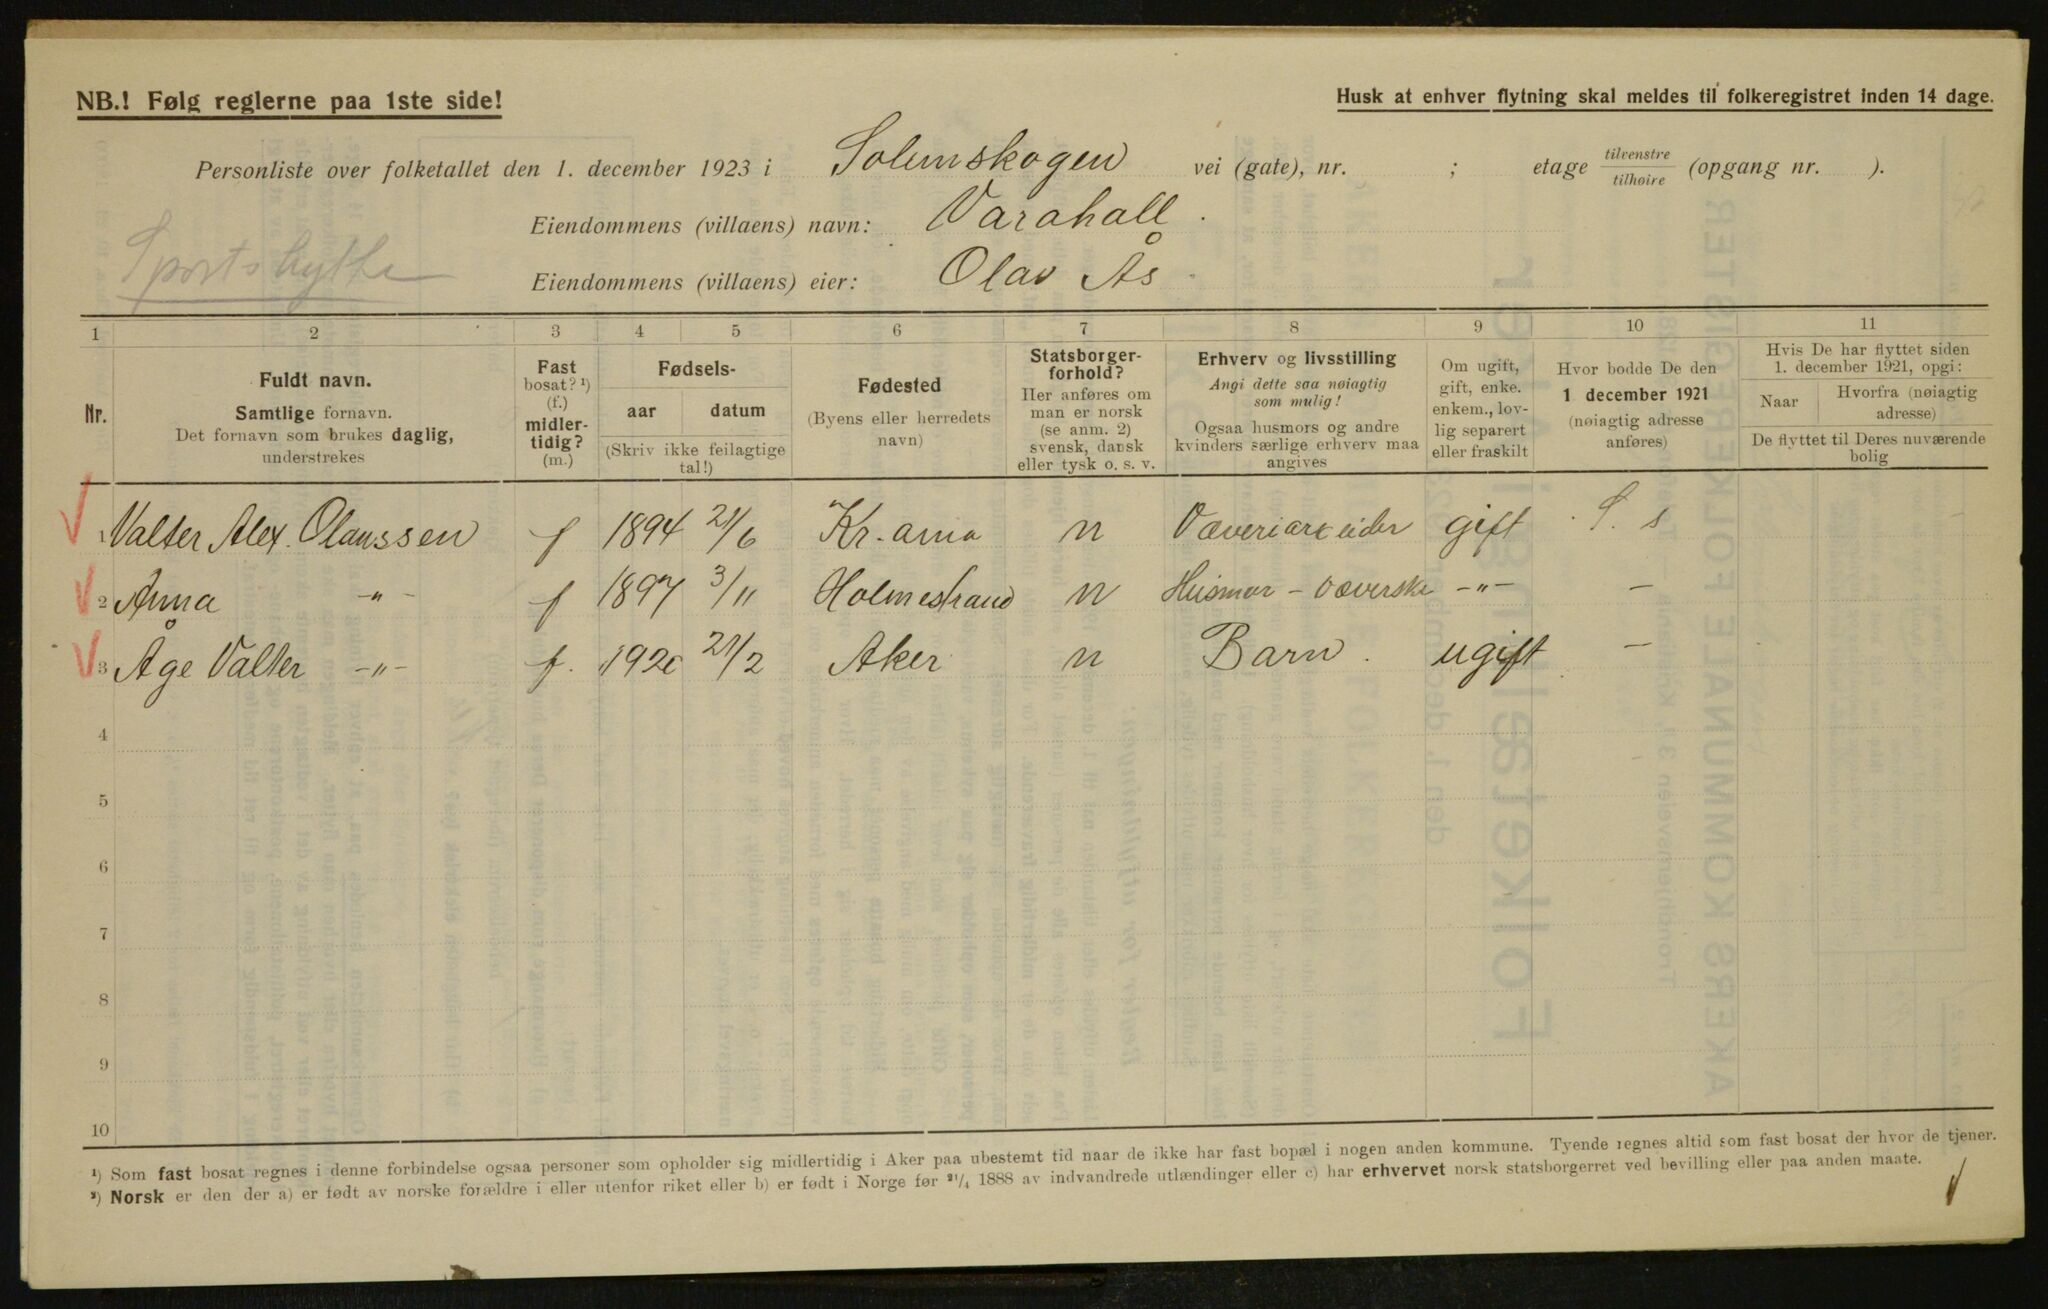 NB.! Følg reglerne paa 1ste side!
Husk at enhver flytning skal meldes til folkeregistret inden 14 dage.
Personliste over folketallet den 1. december 1923 i Solemskogen vei (gate), nr. ; etage tilvenstre tilhøire (opgang nr. ).
Eiendommens (villaens) navn: Varahall
Sportshytte
Eiendommens (villaens) eier: Olav Ås
1 2 3 4 5 6 7 8 9 10 11
Nr.
Fuldt navn.
Samtlige fornavn.
Det fornavn som brukes daglig,
understrekes
Fast
bosat? ¹)
(f.)
midler-
tidig?
(m.)
Fødsels-
aar datum
(Skriv ikke feilagtige
tal!)
Fødested
(Byens eller herredets
navn)
Statsborger-
forhold?
Her anføres om
man er norsk
(se anm. 2)
svensk, dansk
eller tysk o. s. v.
Erhverv og livsstilling
Angi dette saa nøiagtig
som mulig!
Ogsaa husmors og andre
kvinders særlige erhverv maa
angives
Om ugift,
gift, enke.
enkem., lov-
lig separert
eller fraskilt
Hvor bodde De den
1 december 1921
(nøiagtig adresse
anføres)
Hvis De har flyttet siden
1. december 1921, opgi:
Naar
Hvorfra (nøiagtig
adresse)
De flyttet til Deres nuværende
bolig
1 Valter Alex. Olaussen f 1894 21/6 Kr.ania n Væveriarbeider gift S. s
2 Anna -"- f 1897 3/11 Holmestrand n Husmor - væverske -"- -
3 Åge Valter -"- f. 1920 21/2 Aker n Barn. ugift -
4
5
6
7
8
9
10
¹) Som fast bosat regnes i denne forbindelse ogsaa personer som opholder sig midlertidig i Aker paa ubestemt tid naar de ikke har fast bopæl i nogen anden kommune. Tyende regnes altid som fast bosat der hvor de tjener.
²) Norsk er den der a) er født av norske forældre i eller utenfor riket eller b) er født i Norge før 21/4 1888 av indvandrede utlændinger eller c) har erhvervet norsk statsborgerret ved bevilling eller paa anden maate.